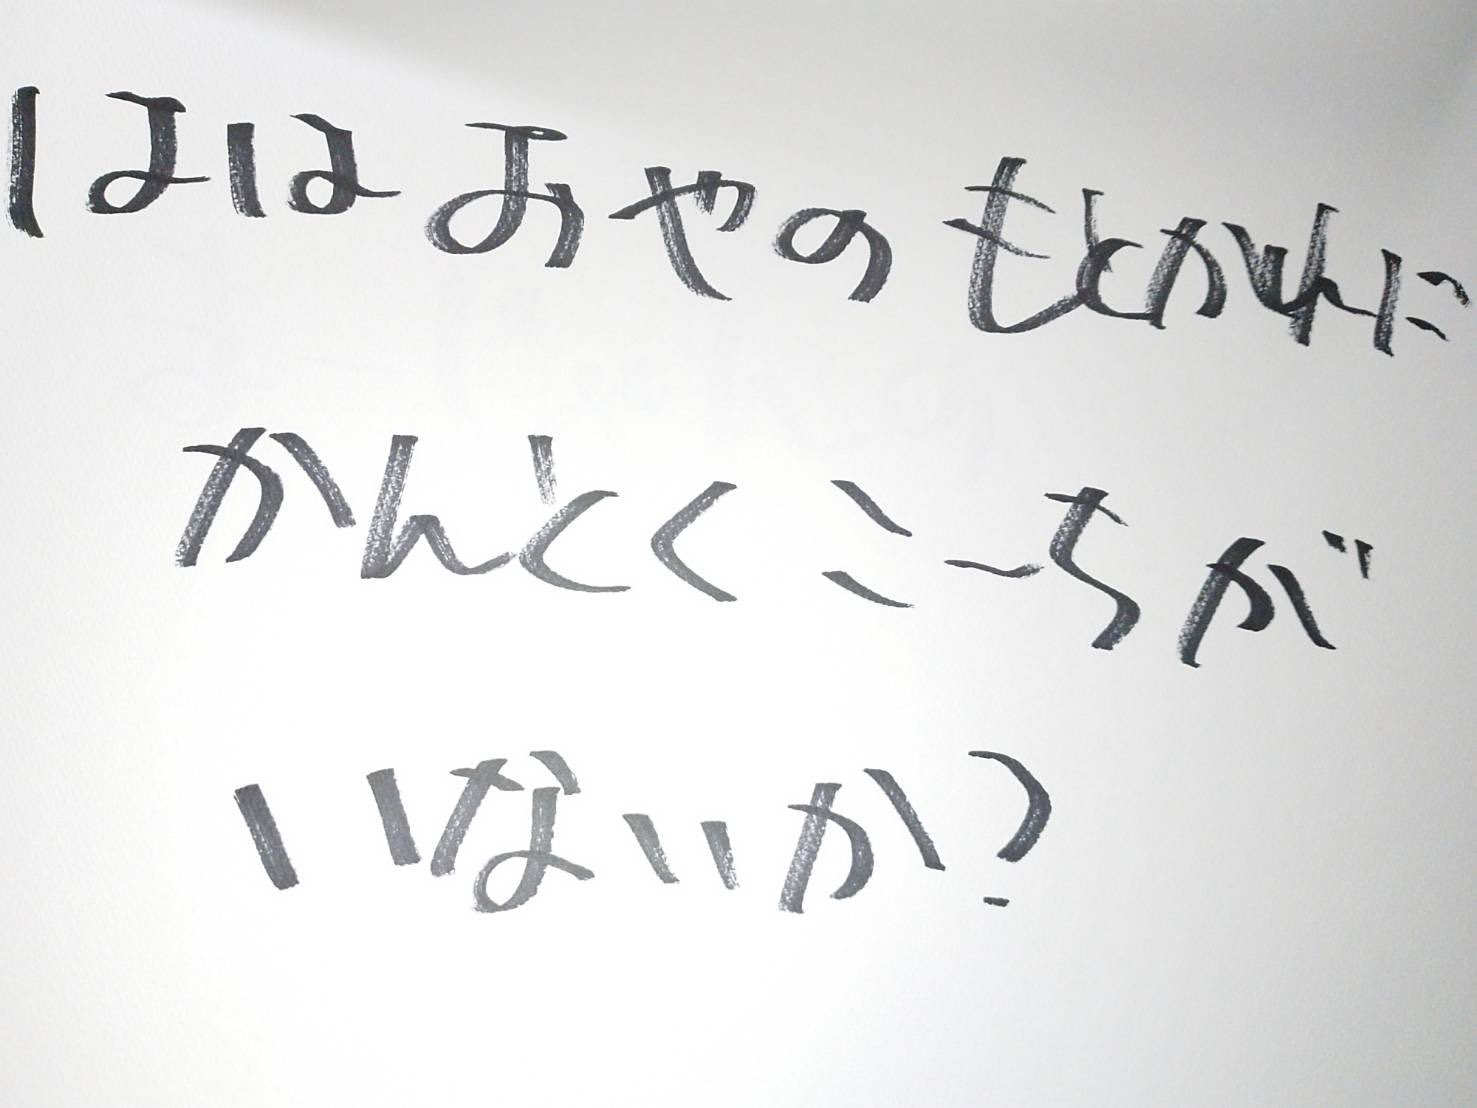 ははおやのもとかんに
かんとくこーちが
いないか?